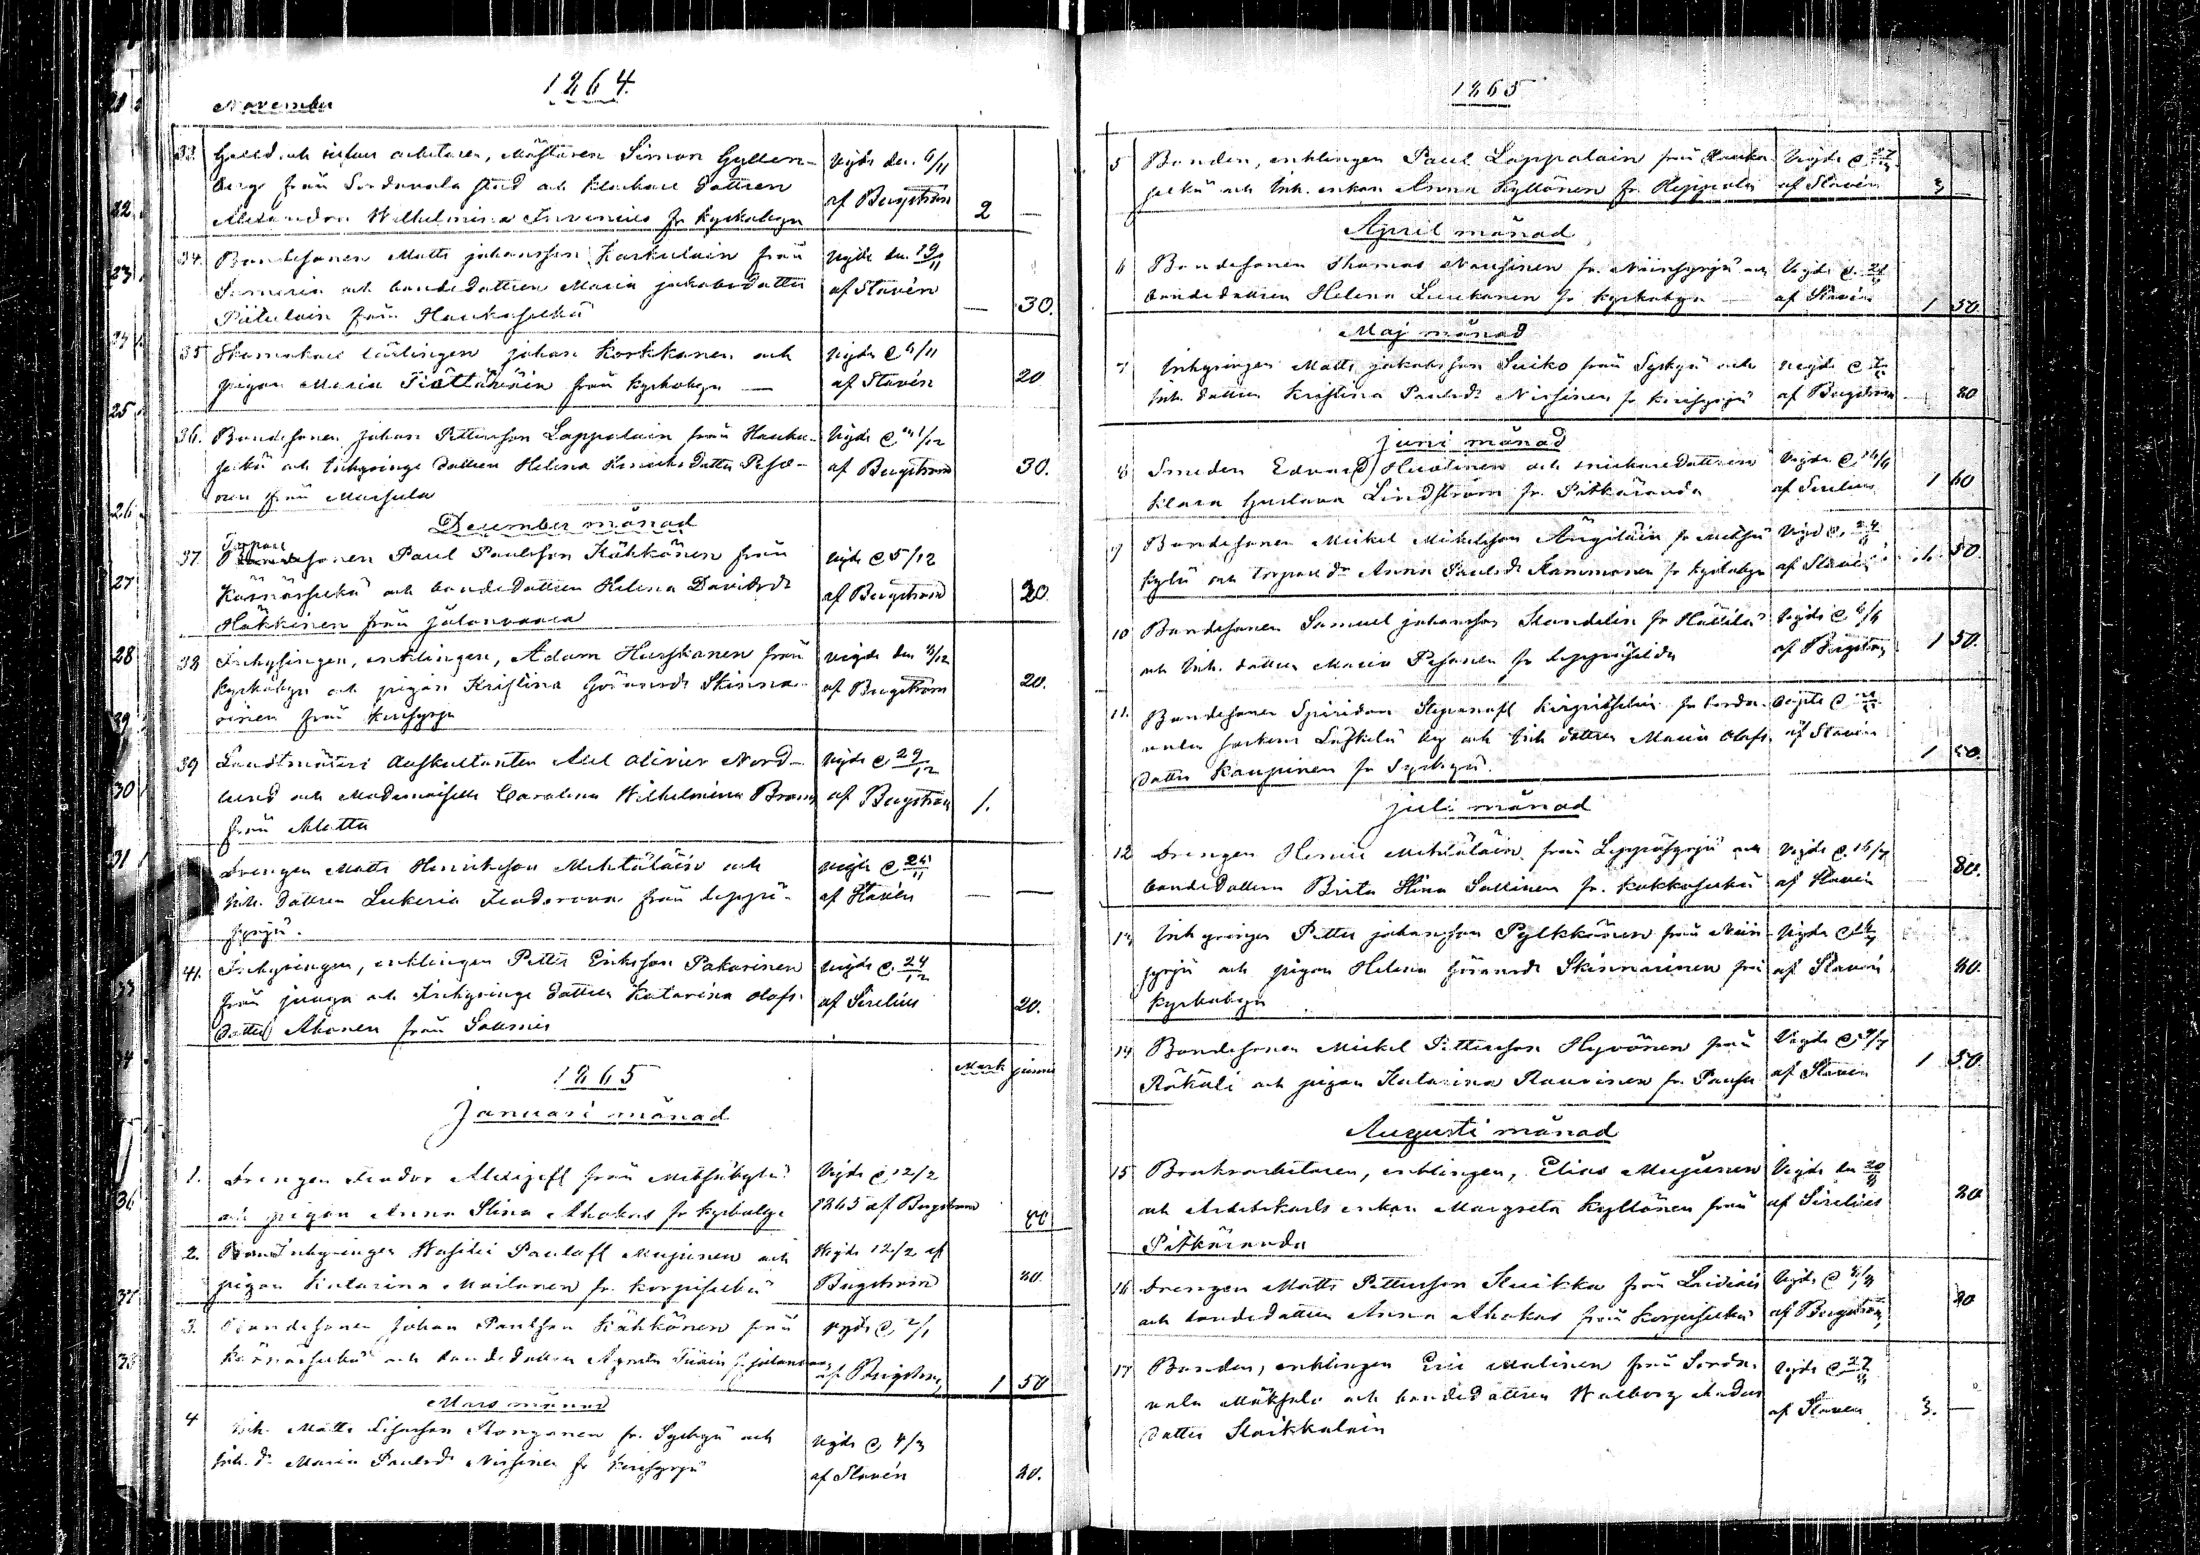 1864.
November
33. Guld och silfver arbetaren, Mästaren Simon Gyllen-
berg från Sordavala stad och klockare dottren
Alexandra Wilhelmina Invenius fr kyrkobyn
vigde den 6/11
af Bergström
2 —
34. Bondesonen Matts Johansson Karhulain från
Sumeria och bondedottren Maria Jakobsdotter
Pitulain från Haukaselkä
vigde den 19/11
af Stavén
— 30.
35 Skomakare lärlingen Johan Korkkanen och
pigan Maria Tiättäwäin från kyrkobyn —
vigde d 6/11
af Stavén
20
36. Bondesonen Johan Pettersson Lappalain från Hauka-
selkä och Inhysinge dottren Helena Henriksdotter Peso-
nen från Mursula
Vigde d 11/12
af Bergström
30.
December månad
Torpare
37. sonen Paul Paulsson Kähkönen från
Käsnäselkä och bondedottren Helena Davidsdr
Häkkinen från Jalanvaara
vigde d 5/12
af Bergström
20
38 Inhysingen, enklingen, Adam Hurskanen från
kyrkobyn och pigan Kristina Göransdr Skinna-
rinen från Kirisyrjä
vigde den /12
af Bergström
20.
39 Landtmäteri Auskultanten Axel Olivier Nord-
lund och Mademoiselle Carolina Wilhelmina Brann
från Alattu
vigde d 29/12
af Bergström
1.
Drengen Matts Henriksson Mehtäläin och
inh. dottren Lukeria Feodorovna från Leppä-
syrjä.
vigde d 25/11
af Stavén
— —
41. Inhysingen, enklingen Petter Eriksson Pakarinen
från Juuga och Inhysinge dottren Katarina Olofs-
dotter Ahonen från Soanis
vigde d. 24/12
af Sirelius
20.
1865
Mark penni
Januari månad
1. Drengen Feodor Alexejeff från Metsäkylä
och pigan Anna Stina Ahokas fr kyrkobyn
Vigde d 12/2
1865 af Bergström
80
2. Inhysingen Wasilei Pauloff Mujunen och
pigan Katarina Mailanen fr. Korpiselkä
Vigde 12/2 af
Bergström
80.
3. Bondesonen Johan Paulsson Kähkönen från
Käsnäselkä och bondedottren Agneta Tiäin fr Jalanvaara
vigde d, 2/1
af Bergström
1 50
Mars månad
4 Inh. Matts Ronganen fr. Syskyä och
Inh. dr Maria Paulsdr Nissinen fr Kirisyrjä
vigde d, 4/3
af Stavén
80.
1865
5 Bonden, enklingen Paul Lappalain från Hauka-
selkä och Inh. enkan Anna Kyllönen fr. Reppola
Vigde d 27
af Stavén
3 —
April månad
6 Bondesonen Thomas Nousinen fr. Niinisyrjä och
bondedottren Helena Luukanen fr kyrkobyn
Vigde d. 21
af Stavén
1 50
Maj månad
7 Inhysingen Matts Jakobsson Suiko från Syskyä och
Inh. dottren Kristina Paulsdr Nissinen fr Kirisyrjä
vigde d
af Bergström
80
Juni månad
8 Smeden Edvard Huotinen och snickaredottren
Klara Gustava Lindström fr. Pitkäranda
Vigde d /6
af Sirelius
1 60
9 Bondesonen Mickel Mickelsson Ängiläin fr Metsä
kylä och torpare dr Anna Paulsdr Kammonen fr kyrkobyn
Vigd d, 24
af Stavén
1. 50
10 Bondesonen Samuel Johansson Standelin fr Hällilä
och Inh. dottren Maria Pesonen fr Leppäselkä
Vigde d /6
af Bergström
1 50.
11. Bondesonen Spiridon Stepanoff Kirpitschin fr Sorda-
vala sockens Läskelä by och Inh dottren Maria Olofs-
dotter Kaupinen fr Syskyä.
Vigde d
af Stavén
1 50.
Juli månad
12 Drengen Henric Mehtäläin från Leppäsyrjä och
bondedottren Brita Stina Sallinen fr. Kokkoselkä
Vigde d. 16/7
af Stavén
80.
13 Inhysingen Petter Johansson Pylkkönen från Niin-
syrjä och pigan Helena Göransdr Skinnarinen från
kyrkobyn
Vigde d
af Stavén
80.
14 Bondesonen Mickel Pettersson Hyvönen från
Rökäli och pigan Katarina Raurinen fr.
Vigde d 9/7
af Stavén
1 50.
Augusti månad
15 Bruksarbetaren, enklingen, Elias Mujunen
och Arbetskarls enkan Margreta Kyllönen från
Pitkäranda
Vigde den 20/8
af Sirelius
80
16 Drengen Matts Pettersson Kuikka från
och bondedottren Anna Ahokas från Korpiselkä
Vigde d /8
af Bergström
80
17 Bonden, enklingen Eric Malinen från Sorda-
vala och bondedottren Walborg Anders-
dotter Kaikkulain
Vigde d 27
af Staven
3. —